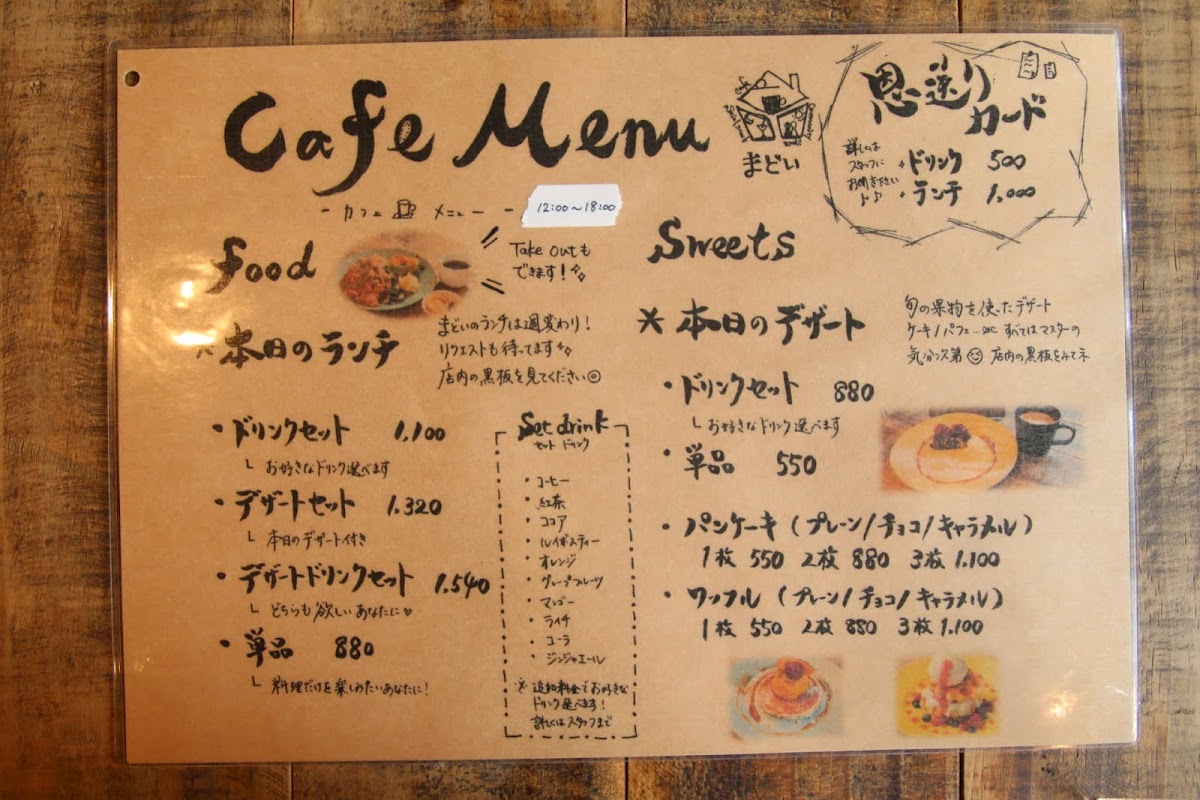 Cafe Menu
まどい
恩送り
カード
詳しくは
スタッフに
お聞きださい
ト♪
・ドリンク 500
・ランチ 1,000
- カフェ メニュー -
12:00〜18:00
Food
Take outも
できます！
＊本日のランチ
まどいのランチは週変わり！
リクエストも待ってます
店内の黒板を見てください☺
・ドリンクセット 1,100
└ お好きなドリンク選べます
・デザートセット 1,320
└ 本日のデザート付き
・デザートドリンクセット 1,540
└ どちらも欲しいあなたに♡
・単品 880
└ 料理だけを楽しみたいあなたに！
Set drink
セット ドリンク
・コーヒー
・紅茶
・ココア
・ルイボスティー
・オレンジ
・グレープフルーツ
・マンゴー
・ライチ
・コーラ
・ジンジャエール
※ 追加料金でお好きな
ドリンク選べます！
詳しくはスタッフまで
Sweets
＊本日のデザート
旬の果物を使ったデザート
ケーキ/パフェ…etc すべてはマスターの
気分次第☺ 店内の黒板をみてネ
・ドリンクセット 880
└ お好きなドリンク選べます
・単品 550
・パンケーキ（プレーン/チョコ/キャラメル）
1枚 550 2枚 880 3枚 1,100
・ワッフル（プレーン/チョコ/キャラメル）
1枚 550 2枚 880 3枚 1,100